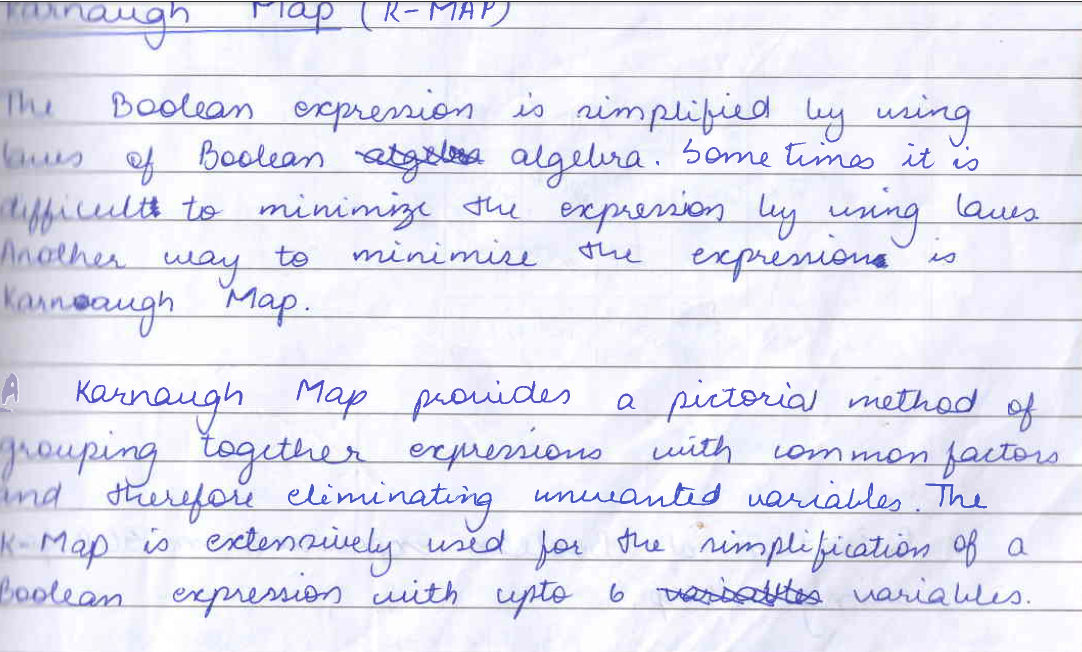 Karnaugh Map (K-MAP)
The Boolean expression is simplified by using
laws of Boolean algebra algebra. Some times it is
difficult to minimize the expression by using laws.
Another way to minimize the expression is
Karnaugh Map.
A Karnaugh Map provides a pictorial method of
grouping together expressions with common factors
and therefore eliminating unwanted variables. The
K-Map is extensively used for the simplification of a
Boolean expression with upto 6 variables variables.